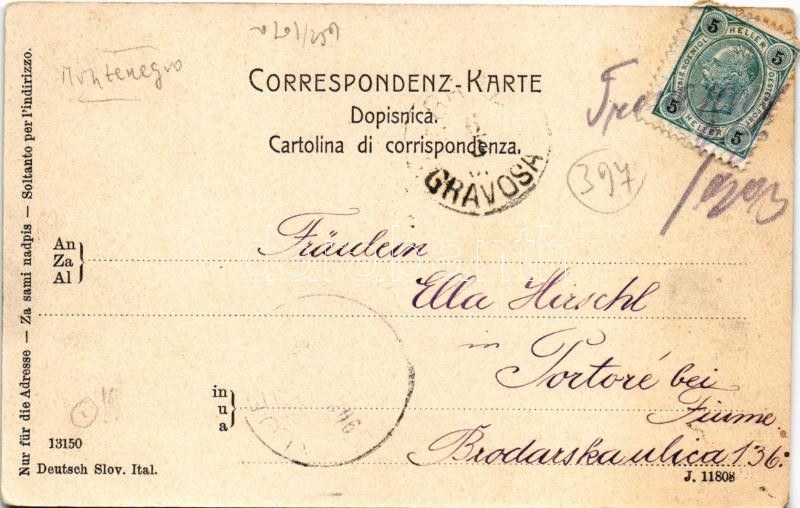 Montenegro
CORRESPONDENZ-KARTE
Dopisnica.
Cartolina di corrispondenza.
GRAVOSA
5 HELLER 5
5 HELLER 5
397
Nur für die Adresse — Za sami nadpis — Soltanto per l'indirizzo.
An
Za
Al
Fräulein
Ella Hirschl
in
Portoré bei
Fiume.
in
u
a
Brodarska ulica 136.
906
13150
Deutsch Slov. Ital.
J. 11808
darabanth